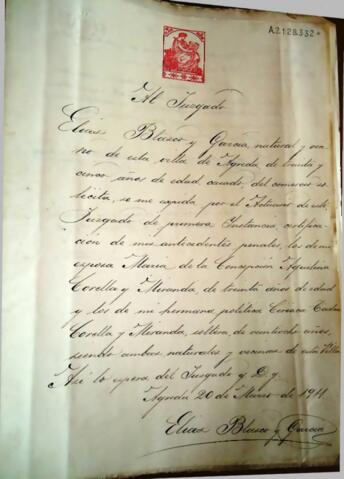 A2128.332*
Al Juzgado
Elias Blasco y García, natural y veci-
no de esta villa de Agreda de treinta y
cinco años de edad, casado, del comercio so-
licita, se me expida por el Notario de este
Juzgado de primera Instancia, certifica-
cion de mis antecedentes penales, los de mi
esposa Maria de la Concepción Aquilina
Corella y Miranda, de treinta años de edad
y los de mi hermana politica Ciriaca
Corella y Miranda, soltera, de veintiocho años,
siendo ambas naturales y vecinas de esta Villa
Asi lo espera del Juzgado y D. g.
Agreda 20 de Marzo de 1911
Elias Blasco y García